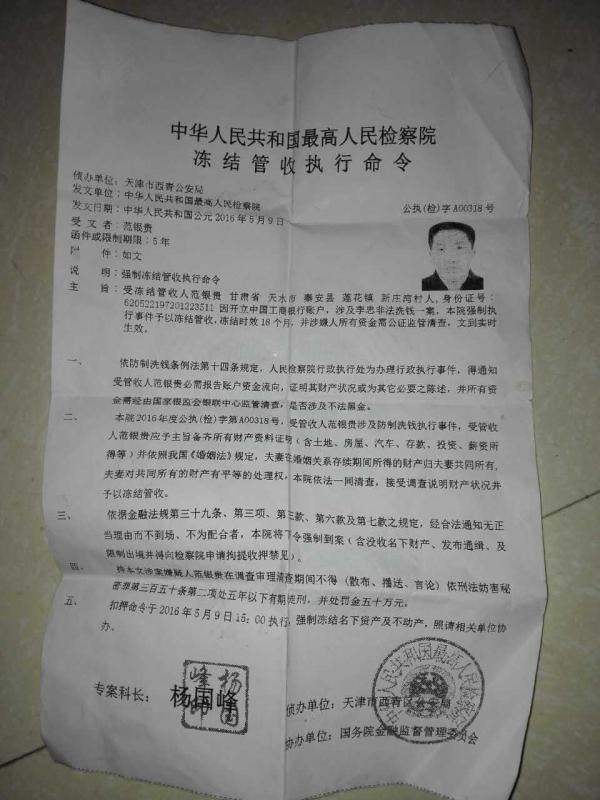 中华人民共和国最高人民检察院
冻结管收执行命令
侦办单位：天津市西青公安局
发文单位：中华人民共和国最高人民检察院
发文日期：中华人民共和国公元2016年5月9日
公执(检)字A00318号
受文者：范银贵
函件或限制期限：5年
附 件：如文
说 明：强制冻结管收执行命令
主 旨：受冻结管收人范银贵 甘肃省 天水市 秦安县 莲花镇 新庄湾村人，身份证号：
620522197201223511 因开立中国工商银行账户，涉及李忠非法洗钱一案，本院强制执
行事件予以冻结管收，冻结时效18个月，并涉嫌人所有资金需公证监管清查，文到实时
生效。
一、 依防制洗钱条例法第十四条规定，人民检察院行政执行处为办理行政执行事件，得通知
受管收人范银贵必需报告账户资金流向，证明其财产状况或为其它必要之陈述，并所有资
金需经由国家银监会银联中心监管清查，是否涉及不法黑金。
二、 本院2016年度公执(检)字第A00318号，受管收人范银贵涉及防制洗钱执行事件，受管收
人范银贵应予主旨备齐所有财产资料证明（含土地、房屋、汽车、存款、投资、薪资所
得等）并依照我国《婚姻法》规定，夫妻在婚姻关系存续期间所得的财产归夫妻共同所有，
夫妻对共同所有的财产有平等的处理权，本院依法一同清查，接受调查说明财产状况并
予以冻结管收。
三、 依据金融法规第三十九条、第三项、第三款、第六款及第七款之规定，经合法通知无正
当理由而不到场、不为配合者，本院将下令强制到案（含没收名下财产、发布通缉、及
限制出境并得向检察院申请拘提收押禁见）。
四、 持本文涉案嫌疑人范银贵在调查审理清查期间不得（散布、播送、言论）依刑法妨害秘
密罪第三百五十条第二项处五年以下有期徒刑，并处罚金五十万元。
五、 扣押命令于2016年5月9日15：00执行，强制冻结名下资产及不动产，照请相关单位协
办。
专案科长： 杨国峰
杨国峰印
侦办单位：天津市西青区公安局
协办单位：国务院金融监督管理委员会
中华人民共和国最高人民检察院